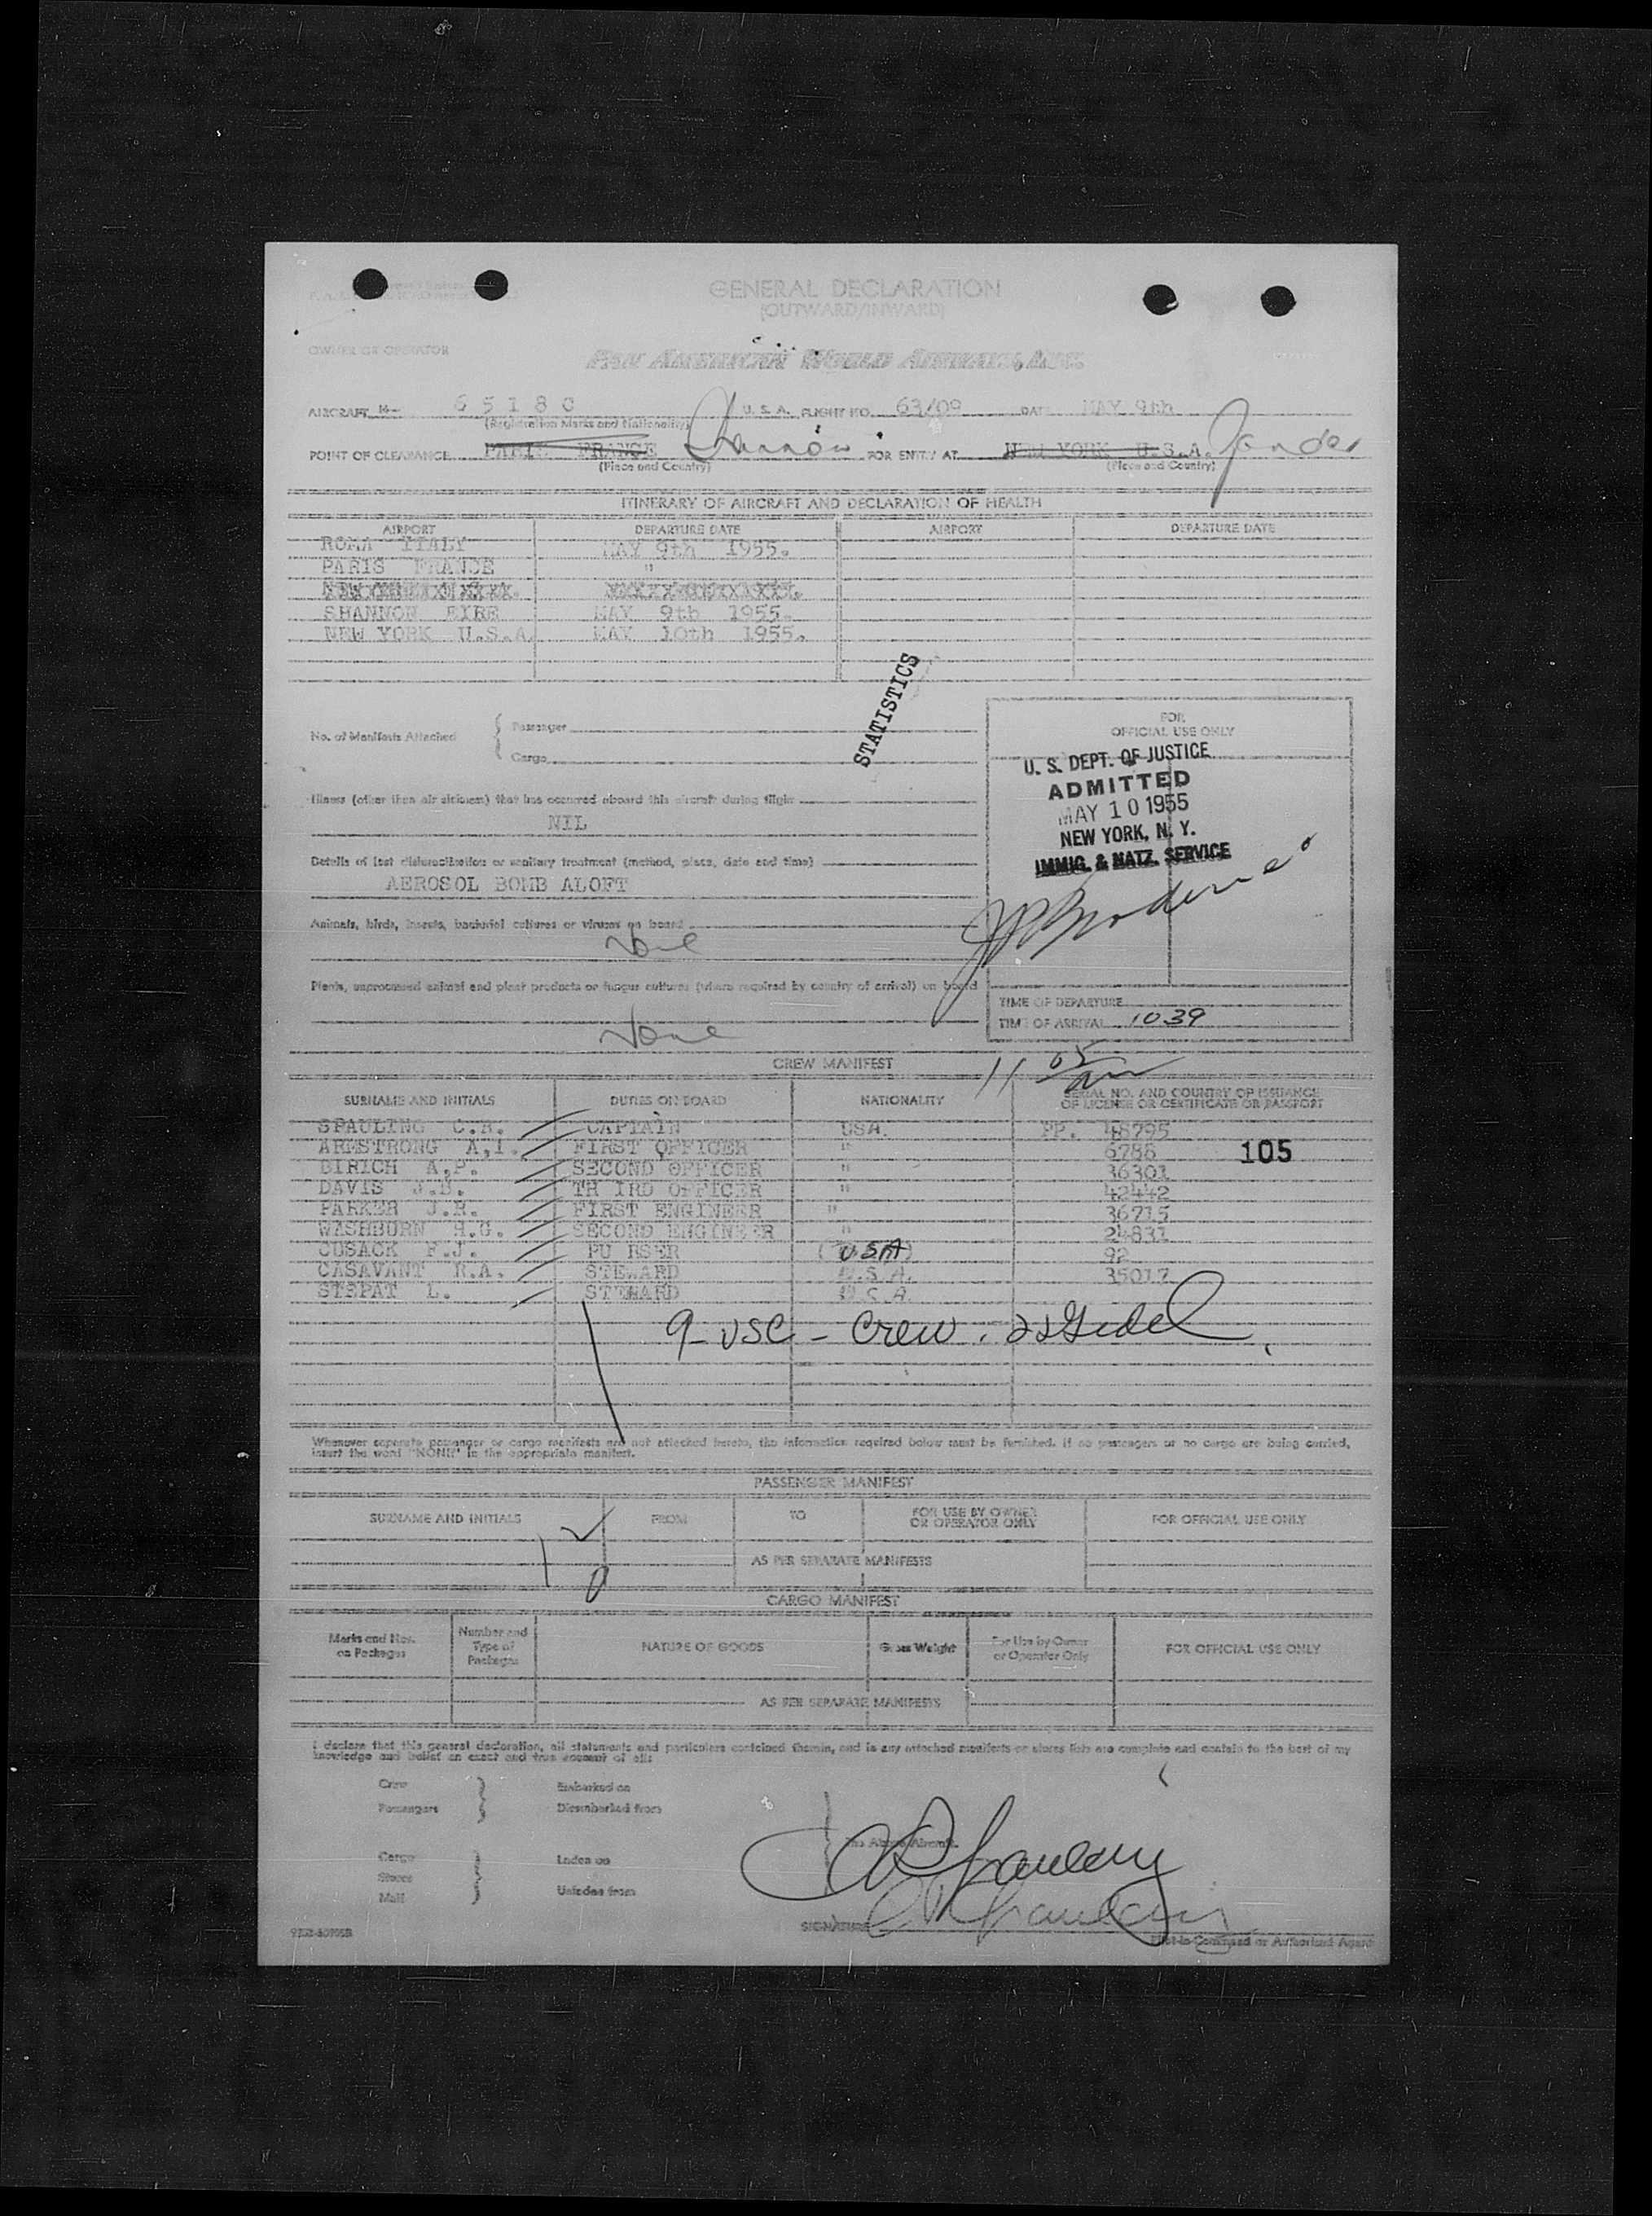 GENERAL DECLARATION
(OUTWARD/INWARD)
OWNER OR OPERATOR
PAN AMERICAN WORLD AIRWAYS, INC.
AIRCRAFT N- 6518C U. S. A. FLIGHT NO. 63/09 DATE MAY 9th
(Registration Marks and Nationality)
POINT OF CLEARANCE PARIS FRANCE Shannon FOR ENTRY AT NEW YORK U.S.A. Gander
(Place and Country) (Place and Country)
ITINERARY OF AIRCRAFT AND DECLARATION OF HEALTH
AIRPORT DEPARTURE DATE AIRPORT DEPARTURE DATE
ROMA ITALY MAY 9th 1955.
PARIS FRANCE "
SHANNON EIRE MAY 9th 1955.
NEW YORK U.S.A. MAY 10th 1955.
STATISTICS
No. of Manifests Attached { Passenger
Cargo
FOR
OFFICIAL USE ONLY
U. S. DEPT. OF JUSTICE
ADMITTED
MAY 10 1955
NEW YORK, N. Y.
IMMIG. & NATZ. SERVICE
Illness (other than air sickness) that has occurred aboard this aircraft during flight
NIL
Details of last disinsectization or sanitary treatment (method, place, date and time)
AEROSOL BOMB ALOFT
Animals, birds, insects, bacterial cultures or viruses on board
None
Plants, unprocessed animal and plant products or fungus cultures (where required by country of arrival) on board
None
TIME OF DEPARTURE
TIME OF ARRIVAL 1039
11 05 am
CREW MANIFEST
SURNAME AND INITIALS DUTIES ON BOARD NATIONALITY SERIAL NO. AND COUNTRY OF ISSUANCE
OF LICENSE OR CERTIFICATE OR PASSPORT
SPAULING C.R. CAPTAIN USA. PP. 48795
ARMSTRONG A,I. FIRST OFFICER " 6788
BIRICH A.P. SECOND OFFICER " 36301
105
DAVIS J.B. TH IRD OFFICER " 42442
PARKER J.R. FIRST ENGINEER " 36715
WASHBURN H.G. SECOND ENGINEER " 24831
CUSACK F.J. PU RSER (USA) 92
CASAVANT R.A. STEWARD U.S.A. 35017
STEPAT L. STEWARD U.S.A.
9 - USC - Crew.
Whenever separate passenger or cargo manifests are not attached hereto, the information required below must be furnished. If no passengers or no cargo are being carried,
insert the word "NONE" in the appropriate manifest.
PASSENGER MANIFEST
SURNAME AND INITIALS FROM TO FOR USE BY OWNER
OR OPERATOR ONLY FOR OFFICIAL USE ONLY
AS PER SEPARATE MANIFESTS
CARGO MANIFEST
Marks and Nos.
on Packages Number and
Type of
Packages NATURE OF GOODS Gross Weight For Use by Owner
or Operator Only FOR OFFICIAL USE ONLY
AS PER SEPARATE MANIFESTS
I declare that this general declaration, all statements and particulars contained therein, and in any attached manifests or stores lists are complete and contain to the best of my
knowledge and belief an exact and true account of all:
Crew Embarked on
Passengers Disembarked from
The Above Aircraft.
Cargo Laden on
Stores
Mail Unladen from
SIGNATURE
Pilot-in-Command or Authorized Agent